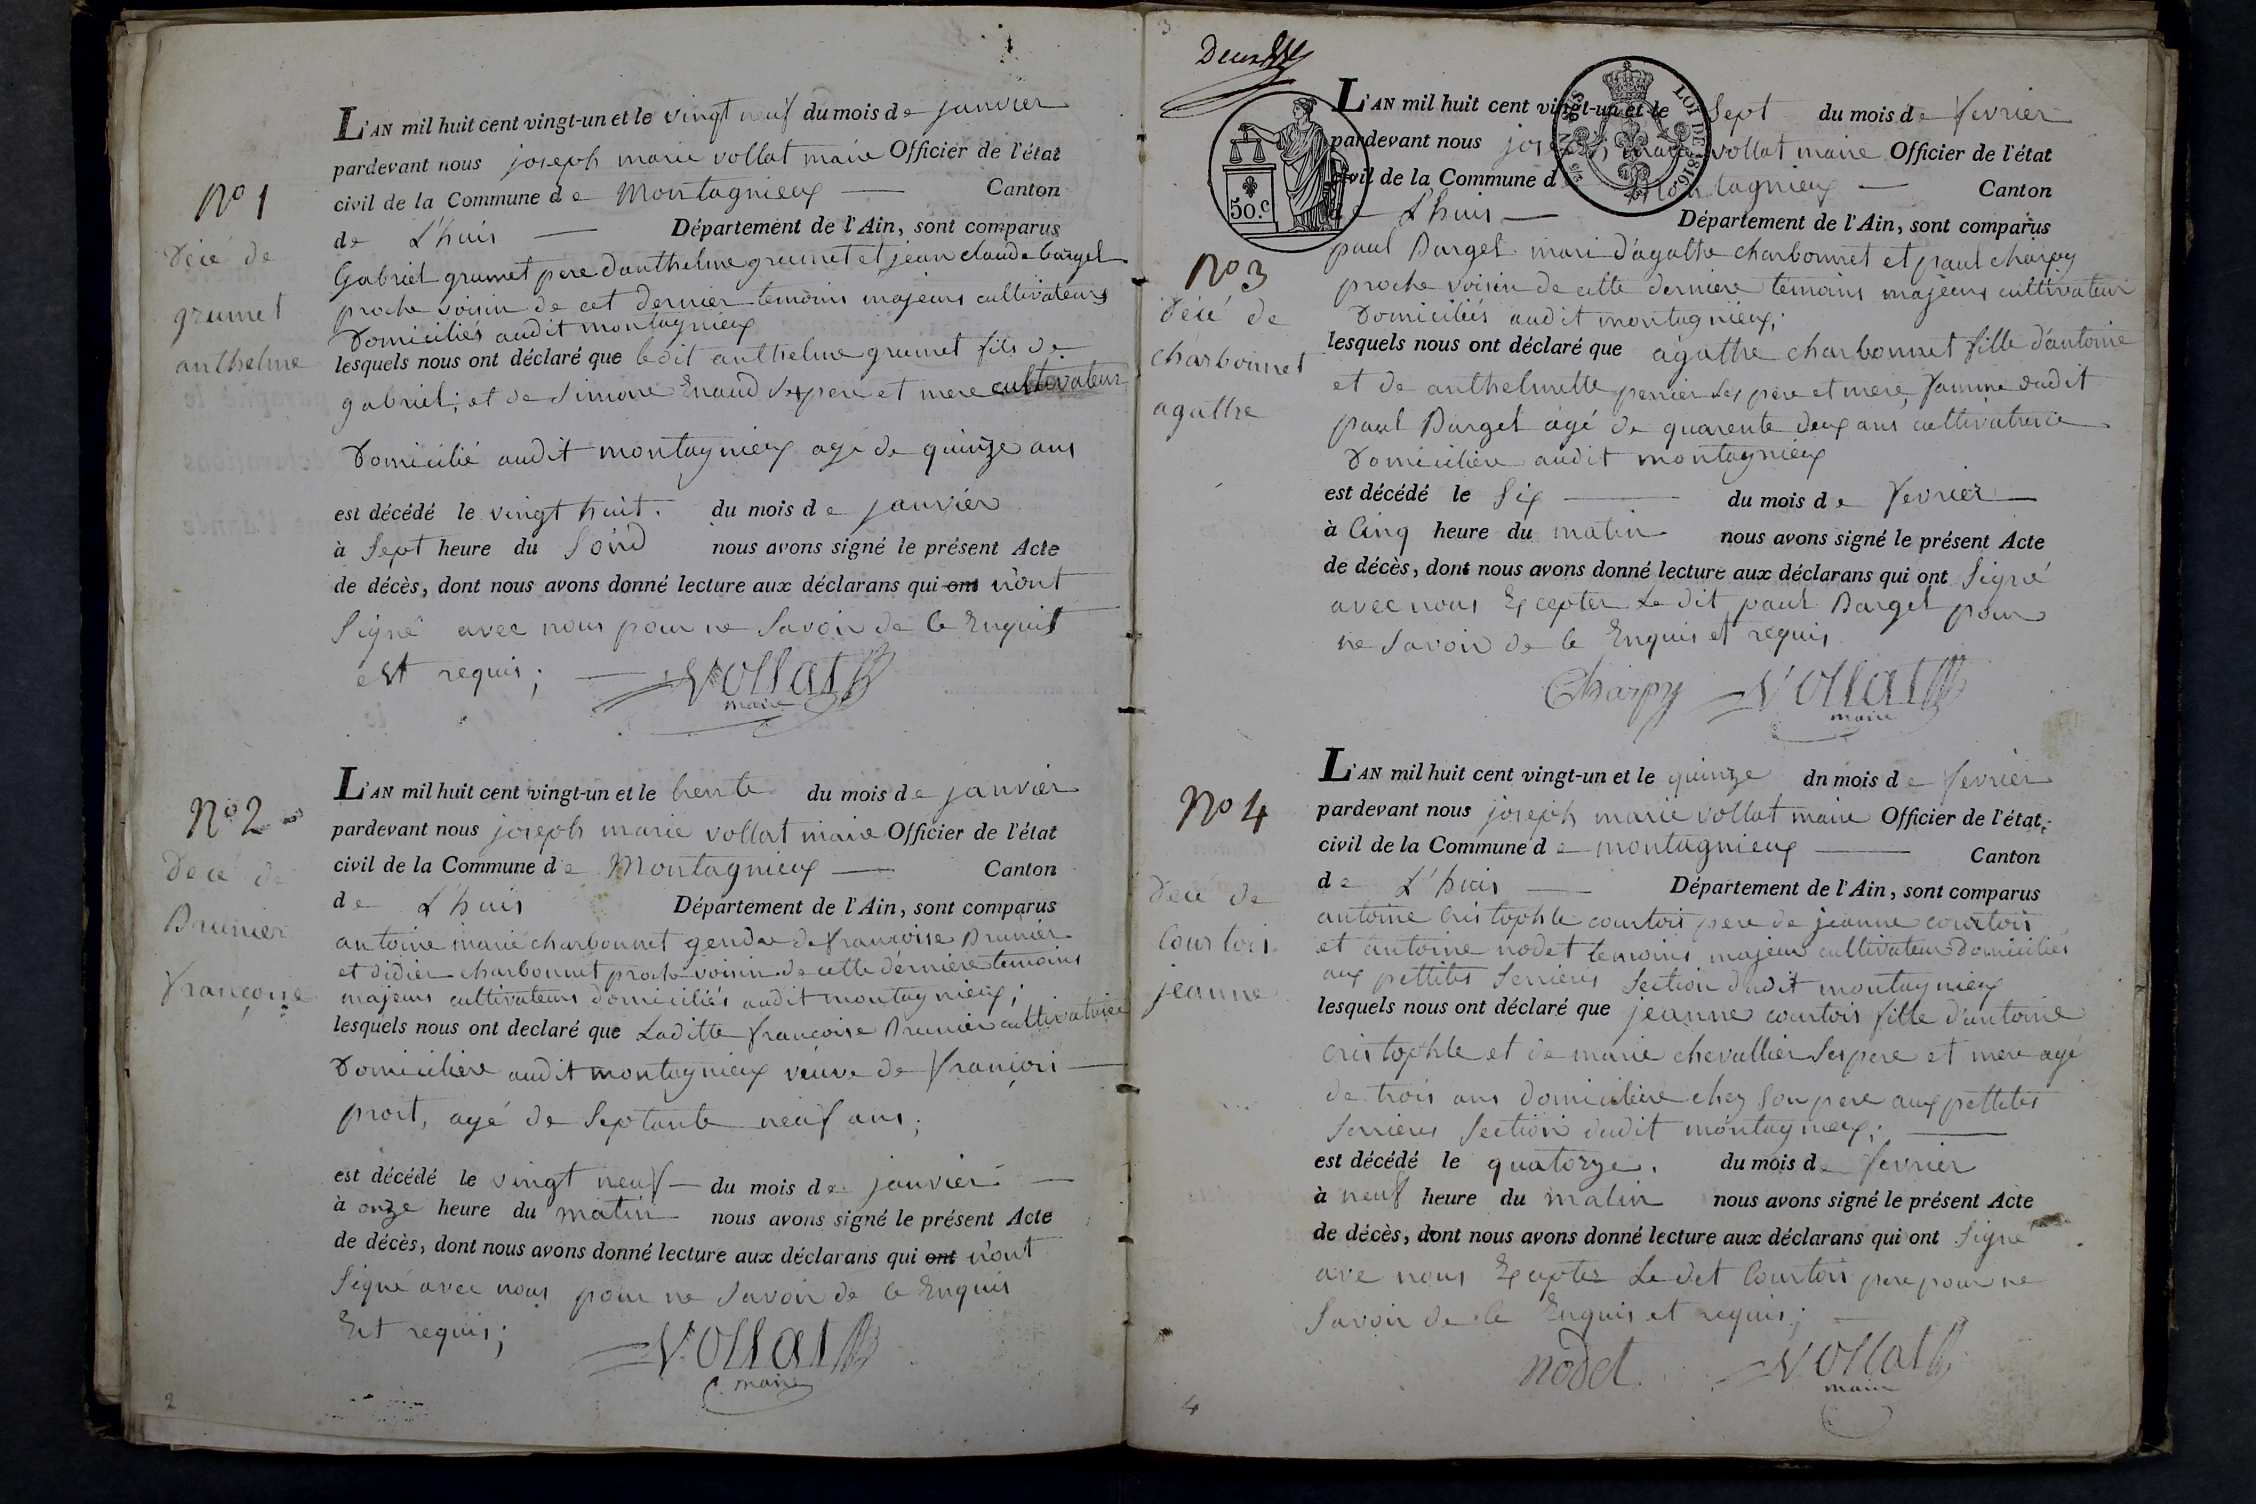 N° 1
Décé de
grumet
anthelme
L'AN mil huit cent vingt-un et le vingt neuf du mois de janvier
pardevant nous joseph marie vollat maire Officier de l'état
civil de la Commune de Montagnieux Canton
de L'huis Département de l'Ain, sont comparus
Gabriel grumet pere d'anthelme grumet et jean claude barget
proche voisin de cet dernier temoins majeurs cultivateurs
Domiciliés audit montagnieux
lesquels nous ont déclaré que ledit anthelme grumet fils de
gabriel, et de Simone Enaud Ses pere et mere cultivateur
Domicilié audit montagnieux agé de quinze ans
est décédé le vingt huit. du mois de janvier
à Sept heure du Soird nous avons signé le présent Acte
de décès, dont nous avons donné lecture aux déclarans qui ont n'ont
Signé avec nous pour ne Savoir de le Enquit
est requis;
Vollat
maire
N° 2
Décé de
Brunier
françoise
L'AN mil huit cent vingt-un et le trente du mois de janvier
pardevant nous joseph marie vollat maire Officier de l'état
civil de la Commune de Montagnieux Canton
de L'huis Département de l'Ain, sont comparus
antoine marie charbonnet gendre de françoise Brunier
et didier charbonnet proche voisin de cette dernière temoins
majeurs cultivateurs domiciliés audit montagnieux;
lesquels nous ont declaré que Laditte françoise Brunier cultivatrice
Domicilière audit montagnieux veuve de françois
prost, agé de Septante neuf ans;
est décédé le vingt neuf du mois de janvier
à onze heure du matin nous avons signé le présent Acte
de décès, dont nous avons donné lecture aux déclarans qui ont n'ont
Signé avec nous pour ne Savoir de le Enquis
Est requis;
Vollat
maire
2
3
Deux
50.c
LOI DE 1816
N° 3
Décé de
charbonnet
agathe
L'AN mil huit cent vingt-un et le Sept du mois de fevrier
pardevant nous joseph marie vollat maire Officier de l'état
civil de la Commune de Montagnieux Canton
de L'huis Département de l'Ain, sont comparus
paul Barget mari d'agathe charbonnet et paul charpy
proche voisin de cette derniere temoins majeurs cultivateur
Domiciliés audit montagnieux;
lesquels nous ont déclaré que agathe charbonnet fille d'antoine
et de anthelmette perrier Ses pere et mere, famme dudit
paul Barget agé de quarente deux ans cultivatrice
Domicilière audit montagnieux
est décédé le Six du mois de fevrier
à Cinq heure du matin nous avons signé le présent Acte
de décès, dont nous avons donné lecture aux déclarans qui ont Signé
avec nous Excepter Le dit paul Barget pour
ne Savoir de le Enquis et requis
Charpy Vollat
maire
N° 4
Décé de
Courtois
jeanne
L'AN mil huit cent vingt-un et le quinze dn mois de fevrier
pardevant nous joseph marie vollat maire Officier de l'état
civil de la Commune de montagnieux Canton
de L'huis Département de l'Ain, sont comparus
antoine cristophle courtois pere de jeanne courtois
et antoine nodet temoins majeur cultivateur Domiciliés
aux pettites Serrieres Section dudit montagnieux
lesquels nous ont déclaré que jeanne courtois fille d'antoine
cristophle et de marie chevallier Ses pere et mere agé
de trois ans domicilière chez Son pere aux pettites
Serrieres Section dudit montagnieux;
est décédé le quatorze. du mois de fevrier
à neuf heure du matin nous avons signé le présent Acte
de décès, dont nous avons donné lecture aux déclarans qui ont Signé
ave nous Excepter Le dit Courtois pere pour ne
Savoir de le Enquis et requis;
nodet Vollat
maire
4